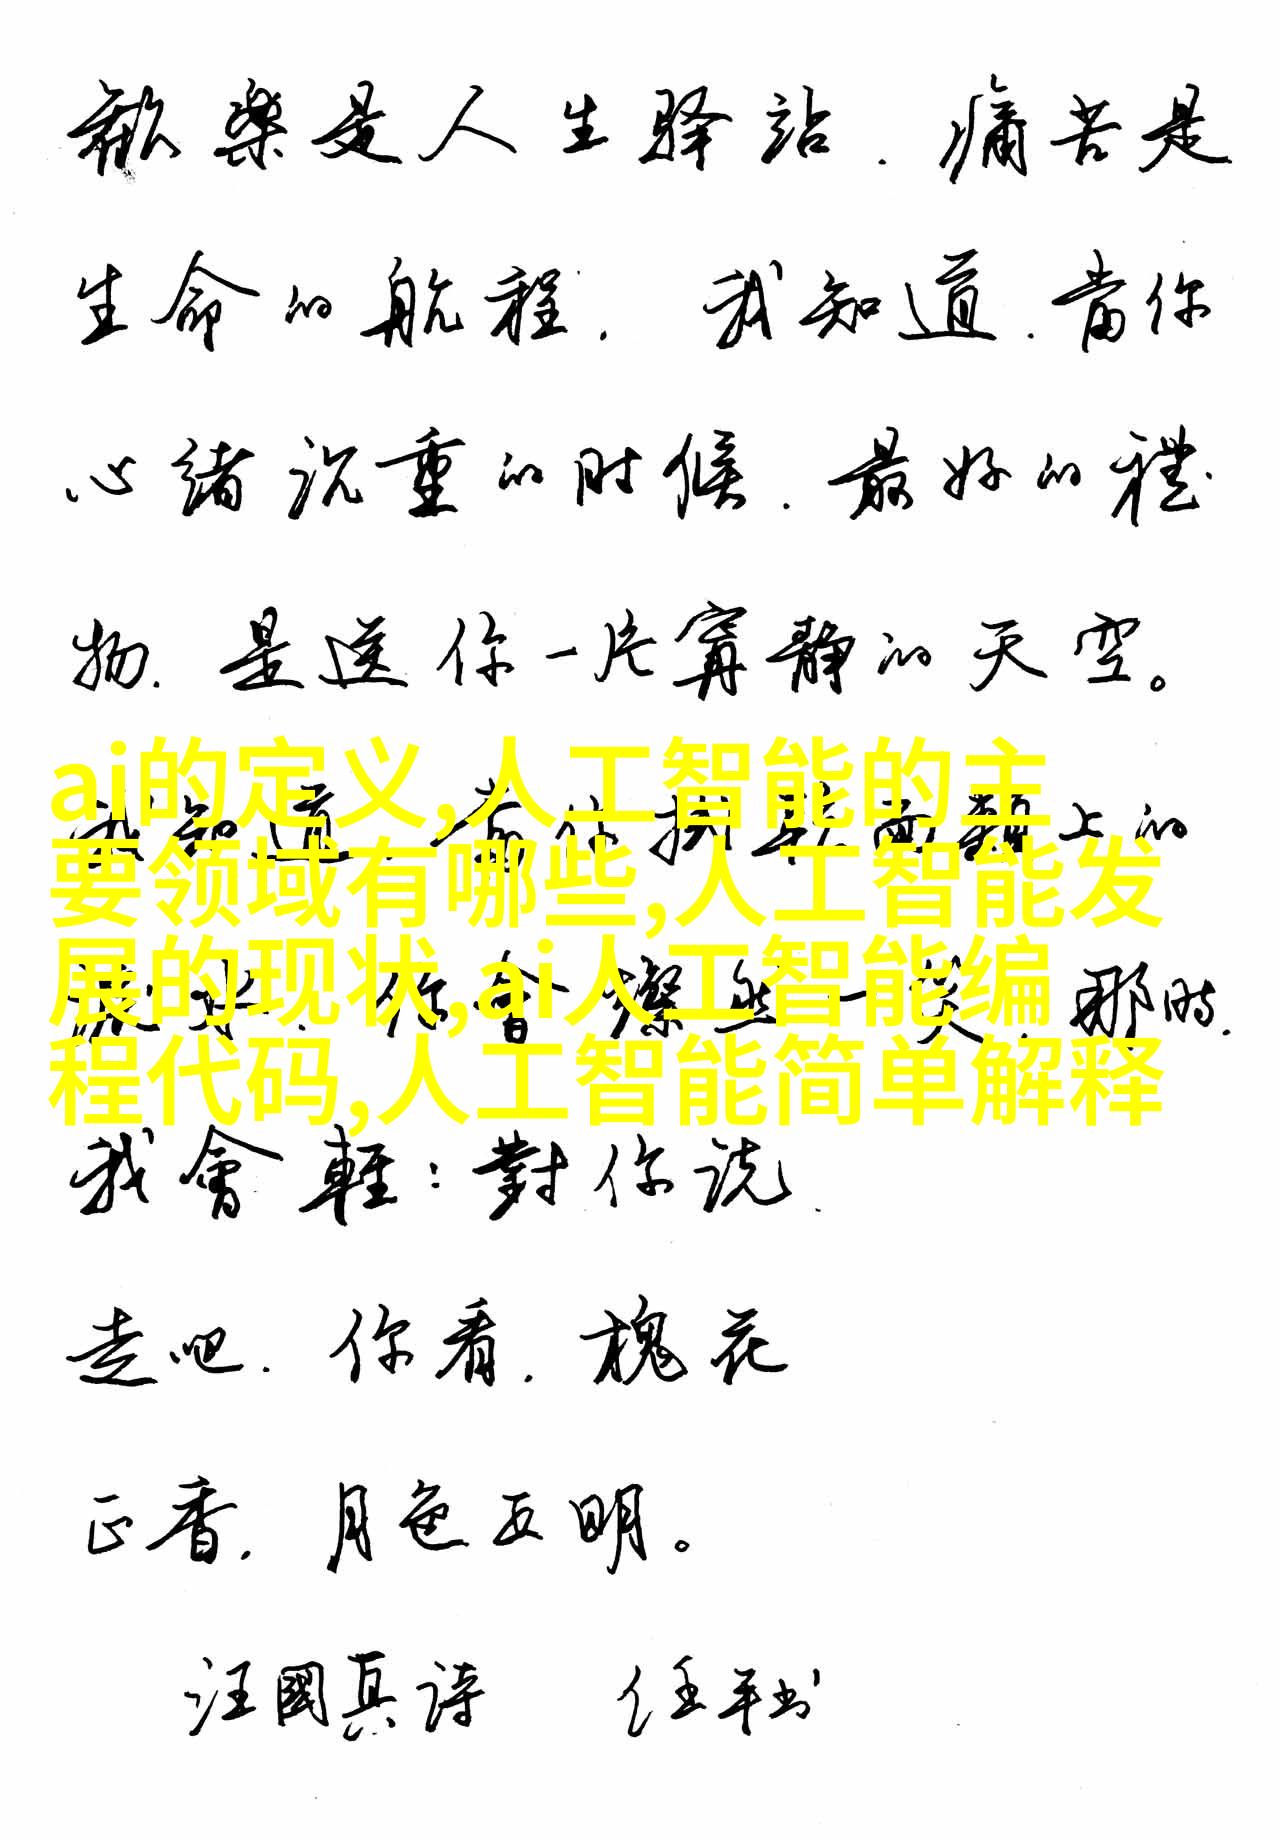 歡樂是人生驿站.痛苦是
生命的航程.我知道.當你
心緒沉重的时候.最好的禮
物.是送你一片寧静的天空。
ai的定义,人工智能的主
我知道 當你 面頰上的
要领域有哪些,人工智能发
展的现状,ai人工智能编
你會燦然一笑.那时.
程代码,人工智能简单解释
我會輕:對你说.
走吧.你看.槐花
正香.月色正明。
汪國真詩 任平书